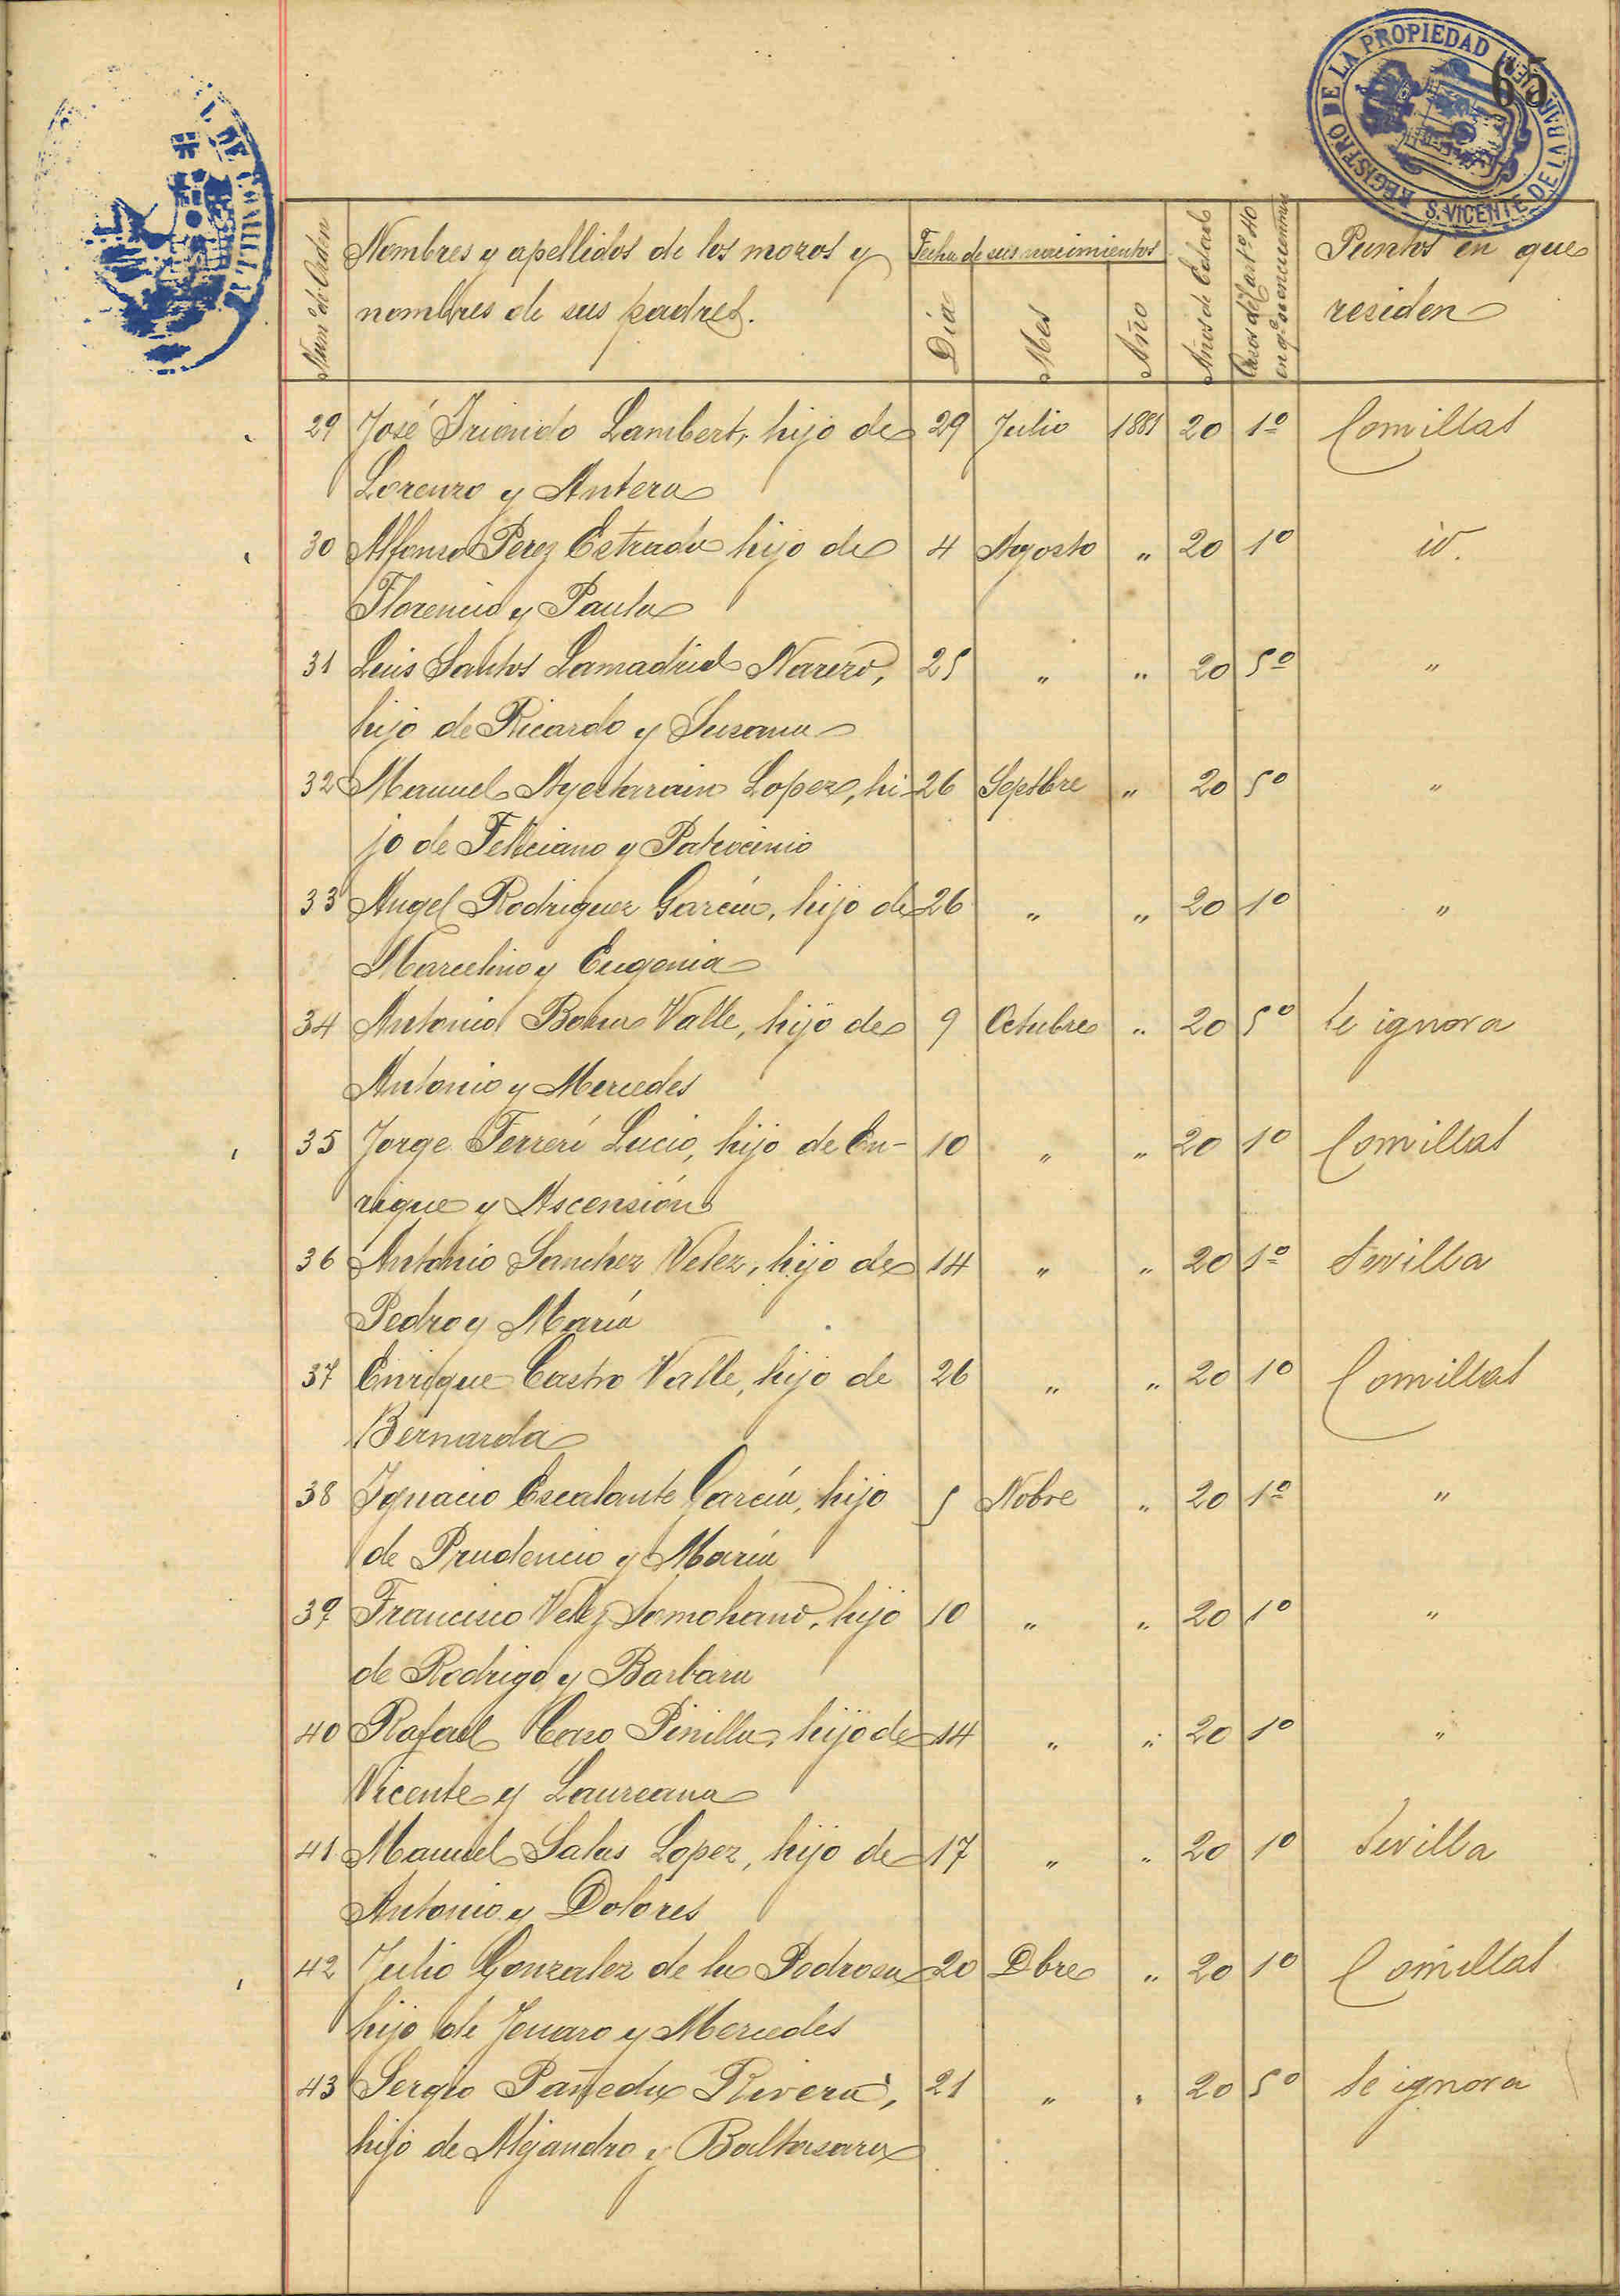 REGISTRO DE LA PROPIEDAD
S. VICENTE DE LA BARQUERA
65
Num. de Orden
Nombres y apellidos de los mozos y
nombres de sus padres.
Fecha de sus nacimientos
Día
Mes
Año
Años de Edad
Casos del artº 40
en qe se encuentran
Puntos en que
residen
29 José Iriondo Lambert, hijo de 29 Julio 1881 20 1º Comillas
Lorenzo y Antera
30 Alfonso Perez Estrada hijo de 4 Agosto " 20 1º id.
Florencio y Paula
31 Luis Santos Lamadrid Narezo, 25 " " 20 5º "
hijo de Ricardo y Susana
32 Manuel Ayestarain Lopez, hi- 26 Septbre " 20 5º "
jo de Feliciano y Patrocinio
33 Angel Rodriguez García, hijo de 26 " " 20 1º "
Marcelino y Eugenia
34 Antonio Valle, hijo de 9 Octubre " 20 5º Se ignora
Antonio y Mercedes
35 Jorge Ferrerí Lucio, hijo de En- 10 " " 20 1º Comillas
rique y Ascensión
36 Antonio Sanchez Velez, hijo de 14 " " 20 1º Sevilla
Pedro y María
37 Enrique Castro Valle, hijo de 26 " " 20 1º Comillas
Bernarda
38 Ignacio Escalante García, hijo 5 Nobre " 20 1º "
de Prudencio y María
39 Francisco Velez Somohano, hijo 10 " " 20 1º "
de Rodrigo y Barbara
40 Rafael Caso Pinilla, hijo de 14 " " 20 1º "
Vicente y Laureana
41 Manuel Salas Lopez, hijo de 17 " " 20 1º Sevilla
Antonio y Dolores
42 Julio Gonzalez de la Pedrosa 20 Dbre " 20 1º Comillas
hijo de Jenaro y Mercedes
43 Sergio Pañeda Rivera, 21 " " 20 5º Se ignora
hijo de Alejandro y Baltasara